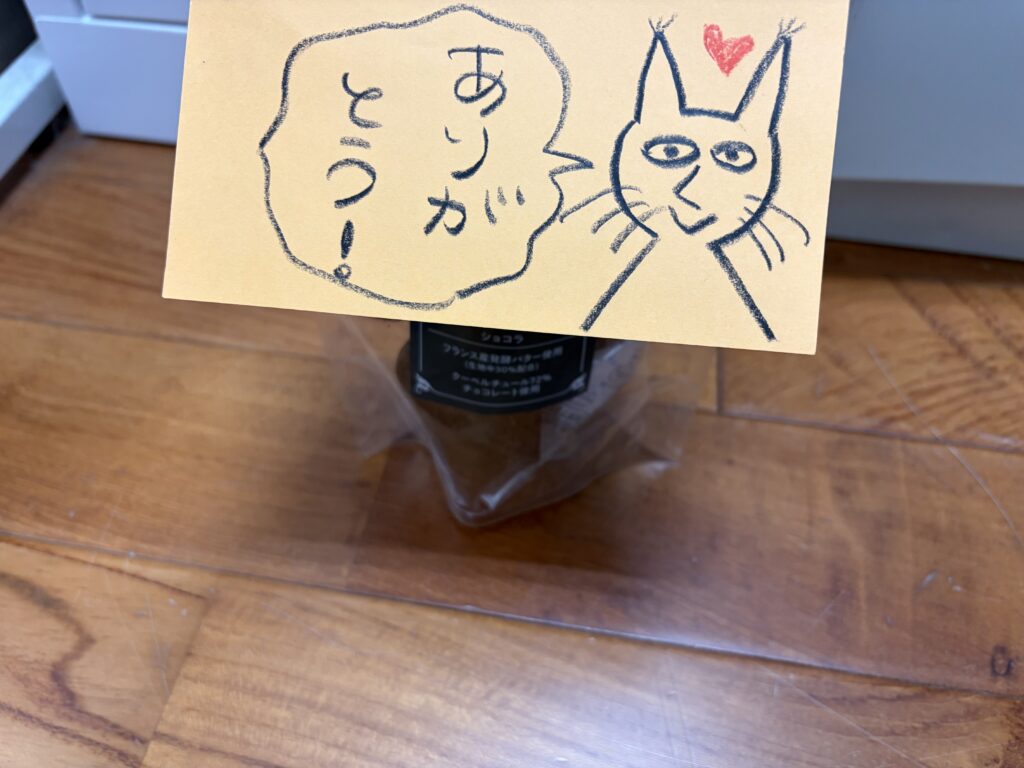 ありが
とう!
ショコラ
フランス産発酵バター使用
(生地中50%配合)
クーベルチュール72%
チョコレート使用